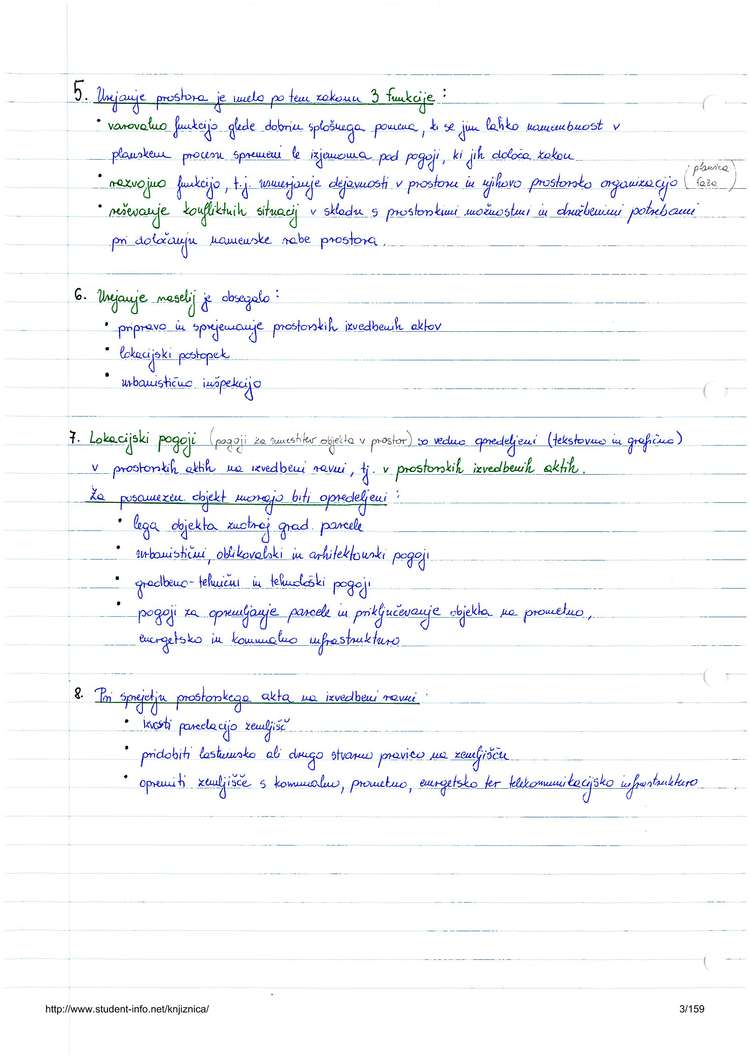 5. Urejanje prostora je imelo po tem zakonu 3 funkcije :
• varovalno funkcijo glede dobrin splošnega pomena, ki se jim lahko namembnost v
planskem procesu spremeni le izjemoma pod pogoji, ki jih določa zakon
• razvojno funkcijo, t.j. usmerjanje dejavnosti v prostoru in njihovo prostorsko organizacijo (
faza )
• reševanje konfliktnih situacij v skladu s prostorskimi možnostmi in družbenimi potrebami
pri določanju namenske rabe prostora.
6. Urejanje naselij je obsegalo :
• pripravo in sprejemanje prostorskih izvedbenih aktov
• lokacijski postopek
• urbanistično inšpekcijo
7. Lokacijski pogoji (pogoji za umestitev objekta v prostor) so vedno opredeljeni (tekstovno in grafično)
v prostorskih aktih na izvedbeni ravni, tj. v prostorskih izvedbenih aktih.
Za posamezen objekt morajo biti opredeljeni :
• lega objekta znotraj grad. parcele
• urbanistični, oblikovalski in arhitektonski pogoji
• gradbeno-tehnični in tehnološki pogoji
• pogoji za opremljanje parcele in priključevanje objekta na prometno,
energetsko in komunalno infrastrukturo
8. Pri sprejetju prostorskega akta na izvedbeni ravni :
• izvesti parcelacijo zemljišč
• pridobiti lastninsko ali drugo stvarno pravico na zemljišču
• opremiti zemljišče s komunalno, prometno, energetsko ter telekomunikacijsko infrastrukturo
http://www.student-info.net/knjiznica/
3/159